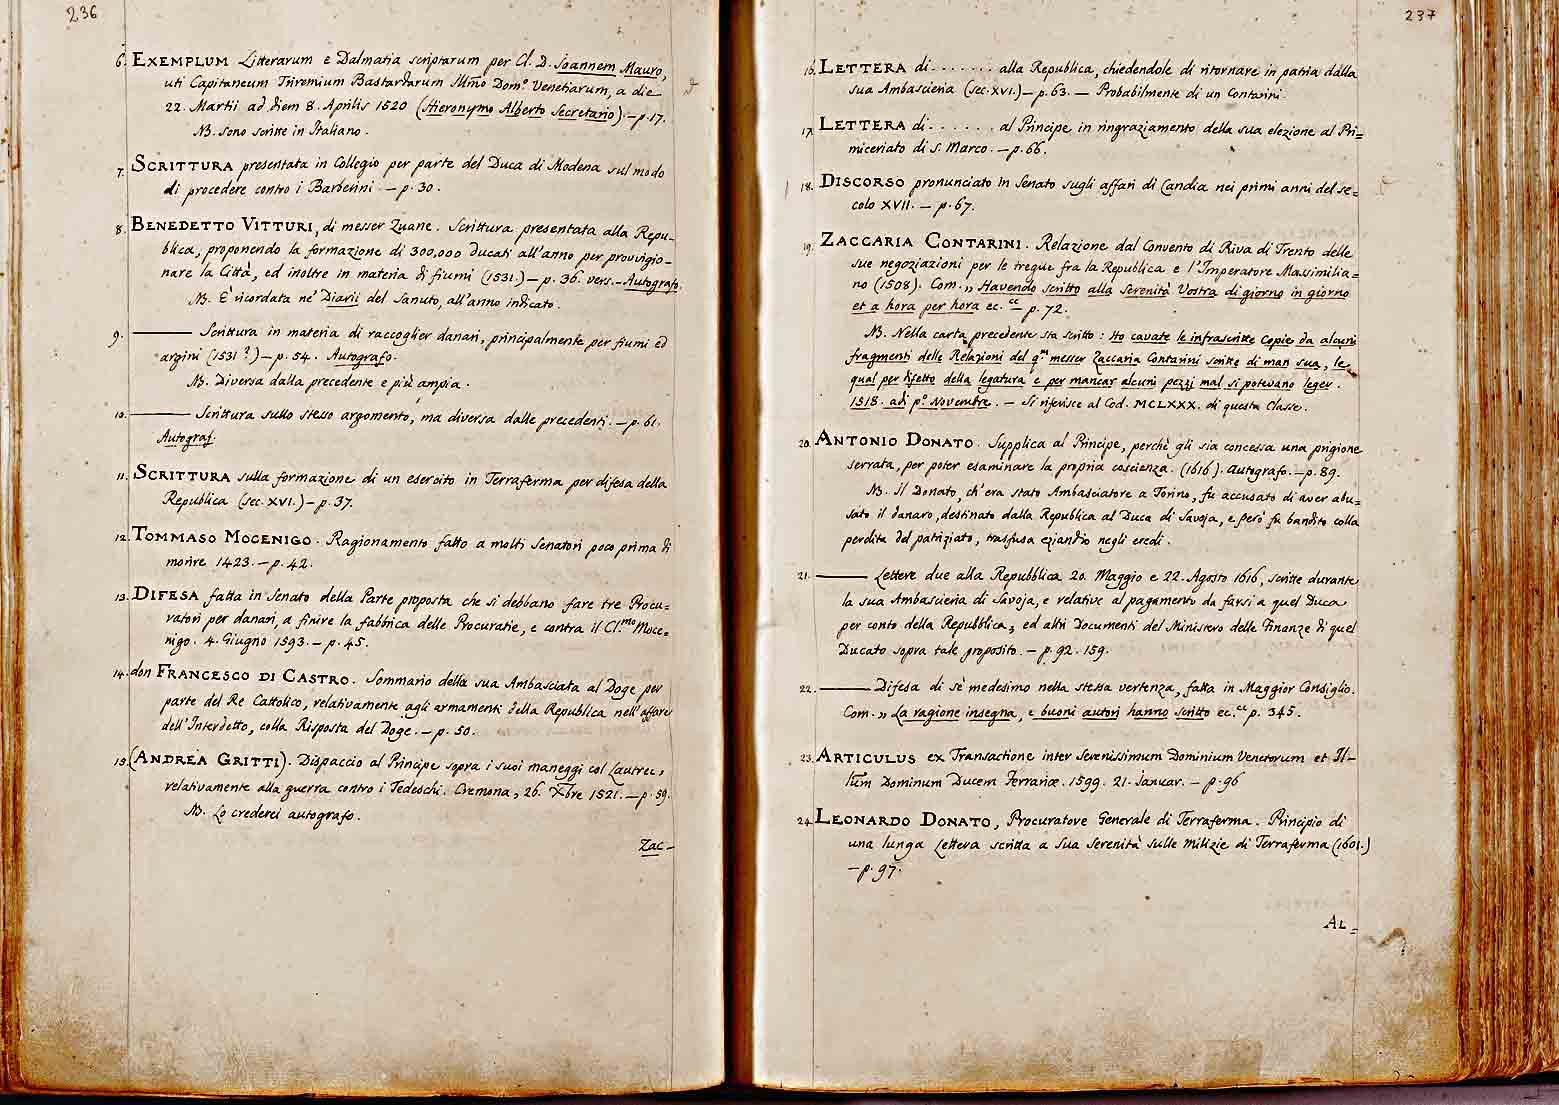 236
6. EXEMPLUM Litterarum e Dalmatia scriptarum per Cl. D. Joannem Mauro,
uti Capitaneum Triremium Bastardarum Illmo Domo Venetiarum, a die
22. Martii ad diem 8. Aprilis 1520 (Hieronymo Alberto Secretario) - p. 17.
NB. sono scritte in Italiano.
7. SCRITTURA presentata in Collegio per parte del Duca di Modena sul modo
di procedere contro i Barberini - p. 30.
8. BENEDETTO VITTURI, di messer Zuane. Scrittura presentata alla Repu-
blica, proponendo la formazione di 300,000 ducati all'anno per provvigio-
nare la Città, ed inoltre in materia di fiumi (1531.) - p. 36. vers. - Autografo.
NB. È ricordata ne' Diarii del Sanuto, all'anno indicato.
9. ——— Scrittura in materia di raccoglier danari, principalmente per fiumi ed
argini (1531?) - p. 54. Autografo.
NB. Diversa dalla precedente e più ampia.
10. ——— Scrittura sullo stesso argomento, ma diversa dalle precedenti. - p. 61.
Autograf.
11. SCRITTURA sulla formazione di un esercito in Terraferma per difesa della
Republica (sec. XVI.) - p. 37.
12. TOMMASO MOCENIGO. Ragionamento fatto a molti Senatori poco prima di
morire 1423. - p. 42.
13. DIFESA fatta in Senato della Parte proposta che si debbano fare tre Procu=
ratori per danari, a finire la fabbrica delle Procuratie, e contra il Cl.mo Moce=
nigo. 4. Giugno 1593. - p. 45.
14. don FRANCESCO DI CASTRO. Sommario della sua Ambasciata al Doge per
parte del Re Cattolico, relativamente agli armamenti della Republica nell'affare
dell'Interdetto, colla Risposta del Doge. - p. 50.
15. (ANDREA GRITTI). Dispaccio al Principe sopra i suoi maneggi col Lautrec,
relativamente alla guerra contro i Tedeschi. Cremona, 26. Xbre 1521. - p. 59.
NB. Lo crederei autografo.
Zac-
237
16. LETTERA di . . . . . . . alla Republica, chiedendole di ritornare in patria dalla
sua Ambascieria (sec. XVI.) - p. 63. — Probabilmente di un Contarini.
17. LETTERA di . . . . . . al Principe in ringraziamento della sua elezione al Pri=
miceriato di S. Marco. - p. 66.
18. DISCORSO pronunciato in Senato sugli affari di Candia nei primi anni del se=
colo XVII. - p. 67.
19. ZACCARIA CONTARINI. Relazione dal Convento di Riva di Trento delle
sue negoziazioni per le tregue fra la Republica e l'Imperatore Massimilia=
no (1508). Com. „ Havendo scritto alla Serenità Vostra di giorno in giorno
et a hora per hora ec. cc - p. 72.
NB. Nella carta precedente sta scritto: Ho cavate le infrascritte Copie da alcuni
fragmenti delle Relazioni del qm messer Zaccaria Contarini scritte di man sua, le
qual per difetto della legatura e per mancar alcuni pezzi mal si potevano leger.
1518. adi po Novembre. - Si riferisce al Cod. MCLXXX. di questa Classe.
20. ANTONIO DONATO. Supplica al Principe, perchè gli sia concessa una prigione
serrata, per poter esaminare la propria coscienza. (1616). Autografo. - p. 89.
NB. Il Donato, ch'era stato Ambasciatore a Torino, fu accusato di aver abu=
sato il danaro, destinato dalla Republica al Duca di Savoja, e però fu bandito colla
perdita del patriziato, trasfusa eziandio negli eredi.
21. ——— Lettere due alla Repubblica 20. Maggio e 22. Agosto 1616, scritte durante
la sua Ambascieria di Savoja, e relative al pagamento da farsi a quel Duca
per conto della Repubblica; ed altri Documenti del Ministero delle Finanze di quel
Ducato sopra tale proposito. - p. 92. 159.
22. ——— Difesa di sè medesimo nella stessa vertenza, fatta in Maggior Consiglio.
Com. „ La ragione insegna, e buoni autori hanno scritto ec. cc p. 345.
23. ARTICULUS ex Transactione inter Serenissimum Dominium Venetorum et Il-
lum Dominum Ducem Ferrariæ. 1599. 21. Januar. - p. 96
24. LEONARDO DONATO, Procuratore Generale di Terraferma. Principio di
una lunga Lettera scritta a Sua Serenità sulle Milizie di Terraferma (1601.)
- p. 97.
AL=